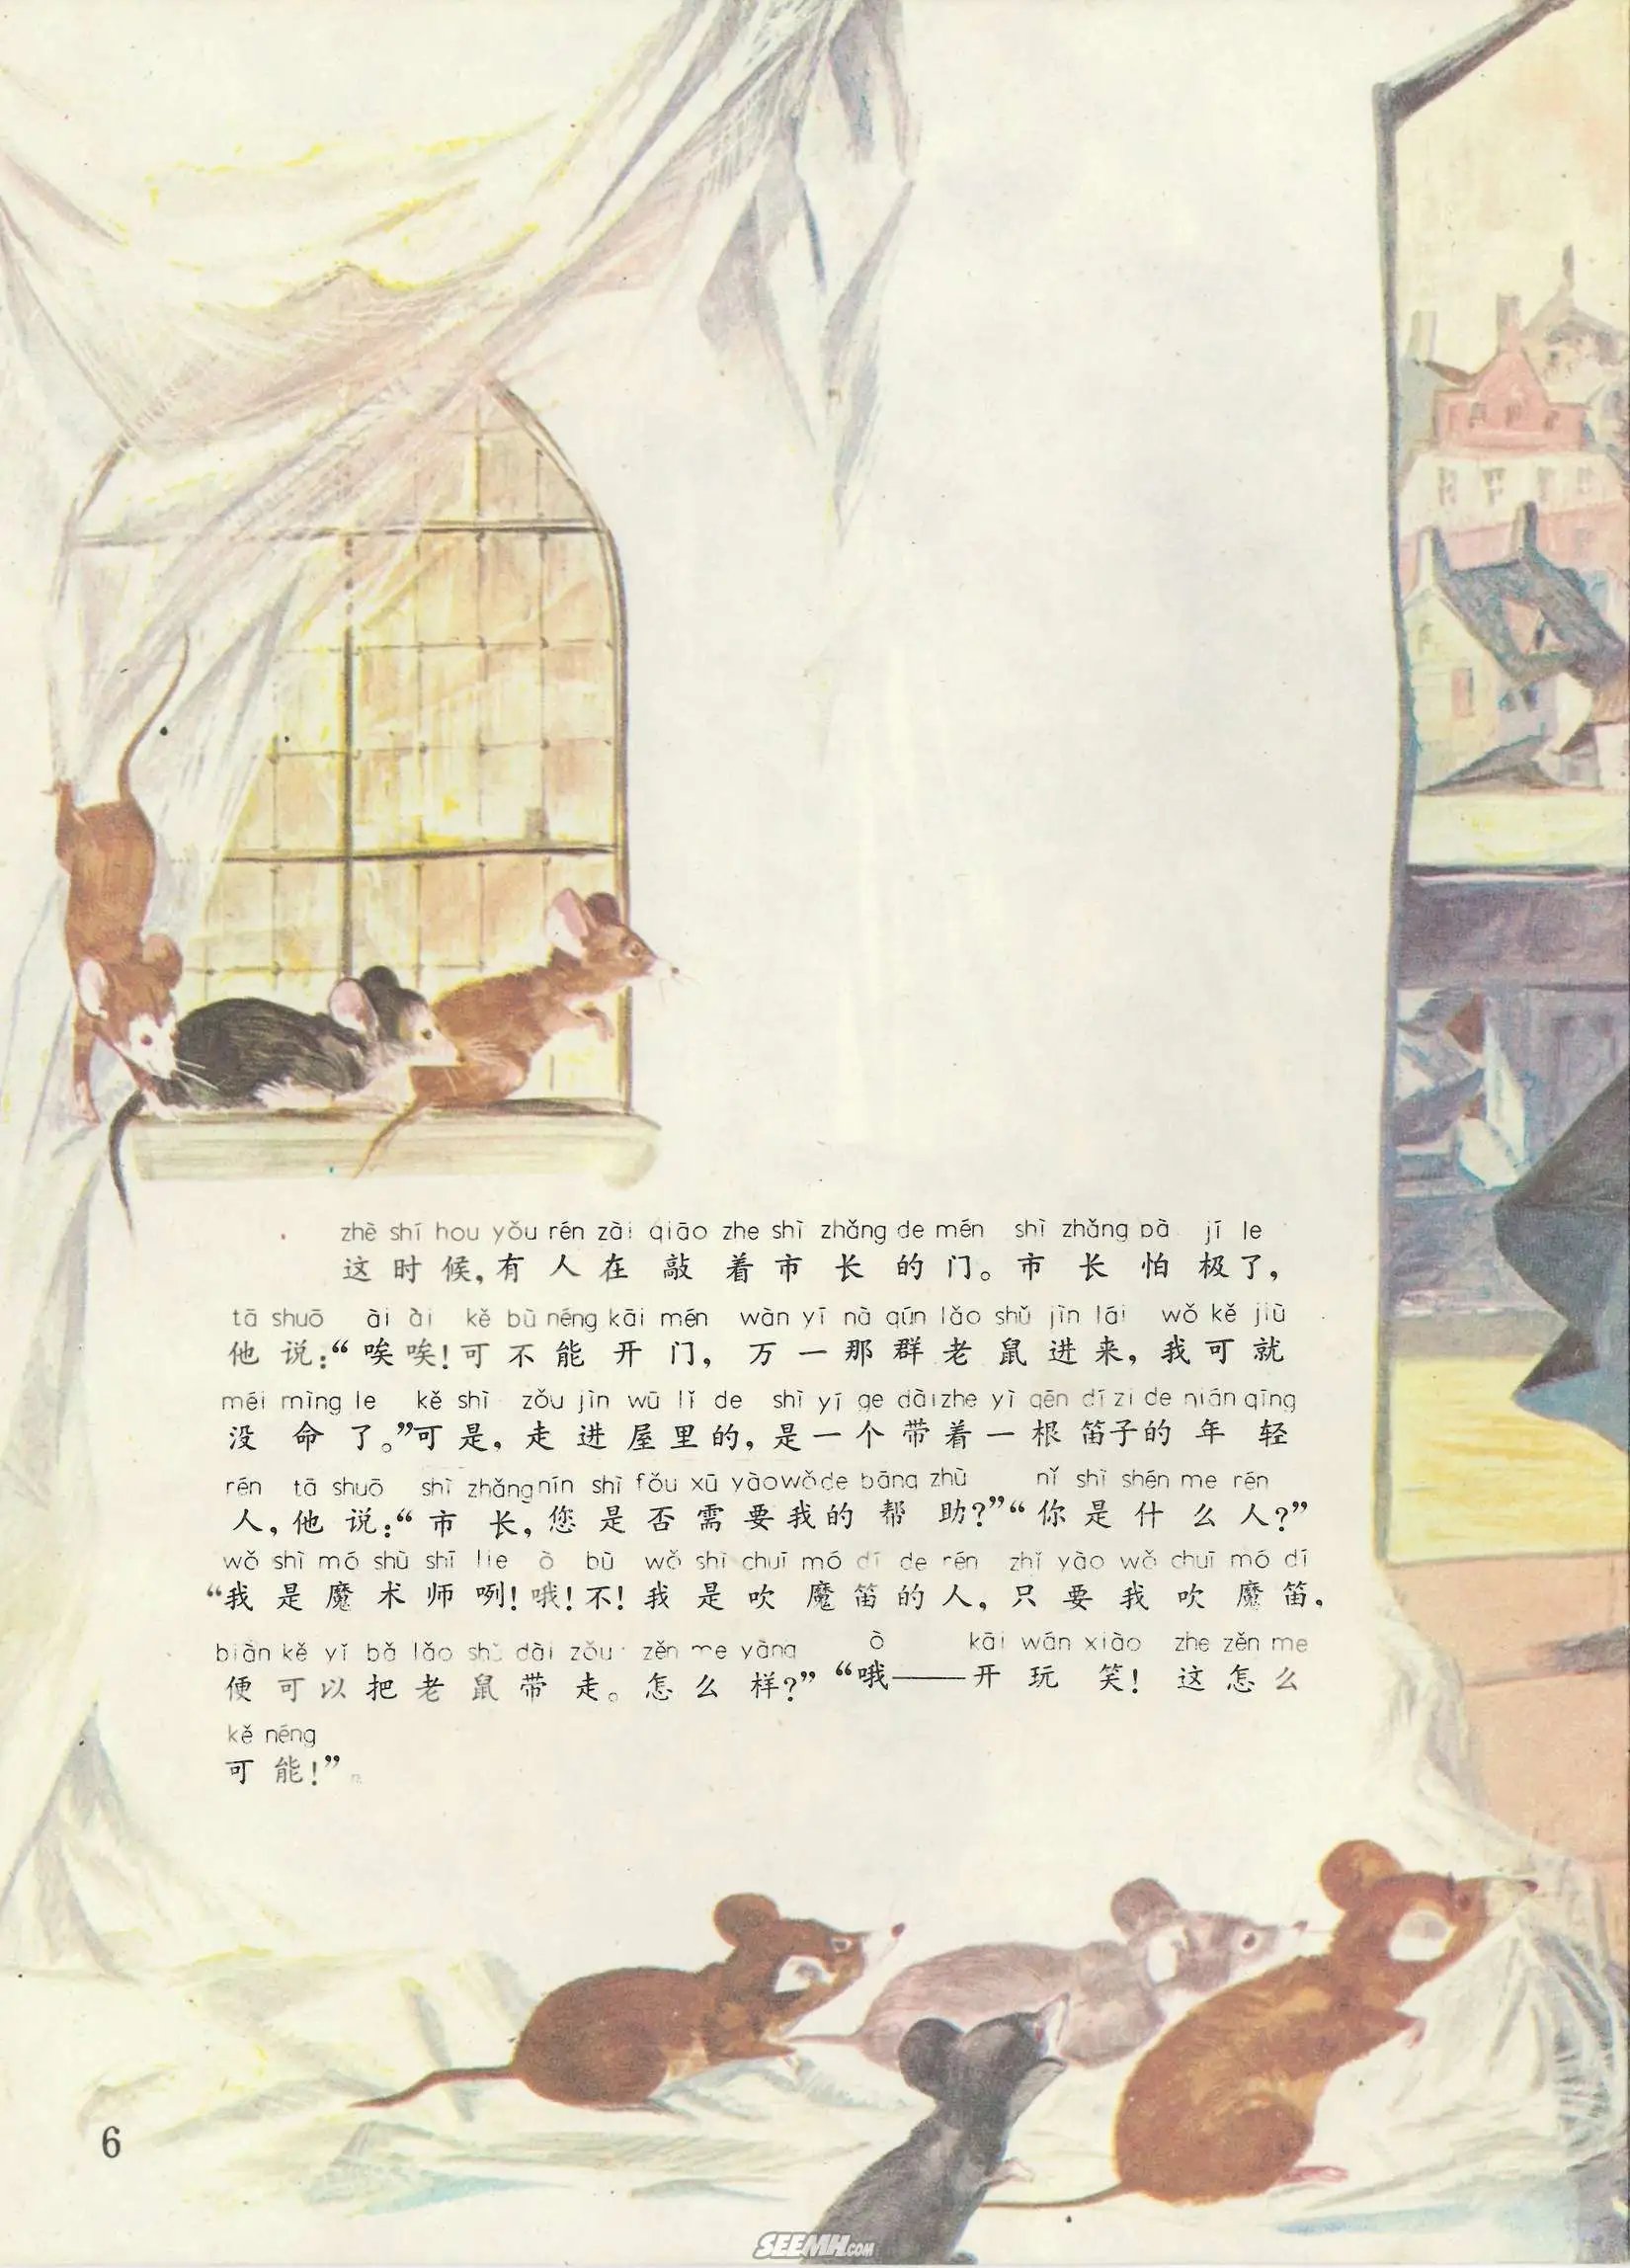 zhè shí hou yǒu rén zài qiāo zhe shì zhǎng de mén shì zhǎng pà jí le
这时候，有人在敲着市长的门。市长怕极了，
tā shuō ài ài kě bù néng kāi mén wàn yī nà qún lǎo shǔ jìn lái wǒ kě jiù
他说：“唉唉！可不能开门，万一那群老鼠进来，我可就
méi mìng le kě shì zǒu jìn wū lǐ de shì yí ge dài zhe yì gēn dí zi de nián qīng
没命了。”可是，走进屋里的，是一个带着一根笛子的年轻
rén tā shuō shì zhǎng nín shì fǒu xū yào wǒ de bāng zhù nǐ shì shén me rén
人，他说：“市长，您是否需要我的帮助？”“你是什么人？”
wǒ shì mó shù shī lie ò bù wǒ shì chuī mó dí de rén zhǐ yào wǒ chuī mó dí
“我是魔术师咧！哦！不！我是吹魔笛的人，只要我吹魔笛，
biàn kě yǐ bǎ lǎo shǔ dài zǒu zěn me yàng ò kāi wán xiào zhe zěn me
便可以把老鼠带走。怎么样？”“哦——开玩笑！这怎么
kě néng
可能！”
6
SEEMH.COM